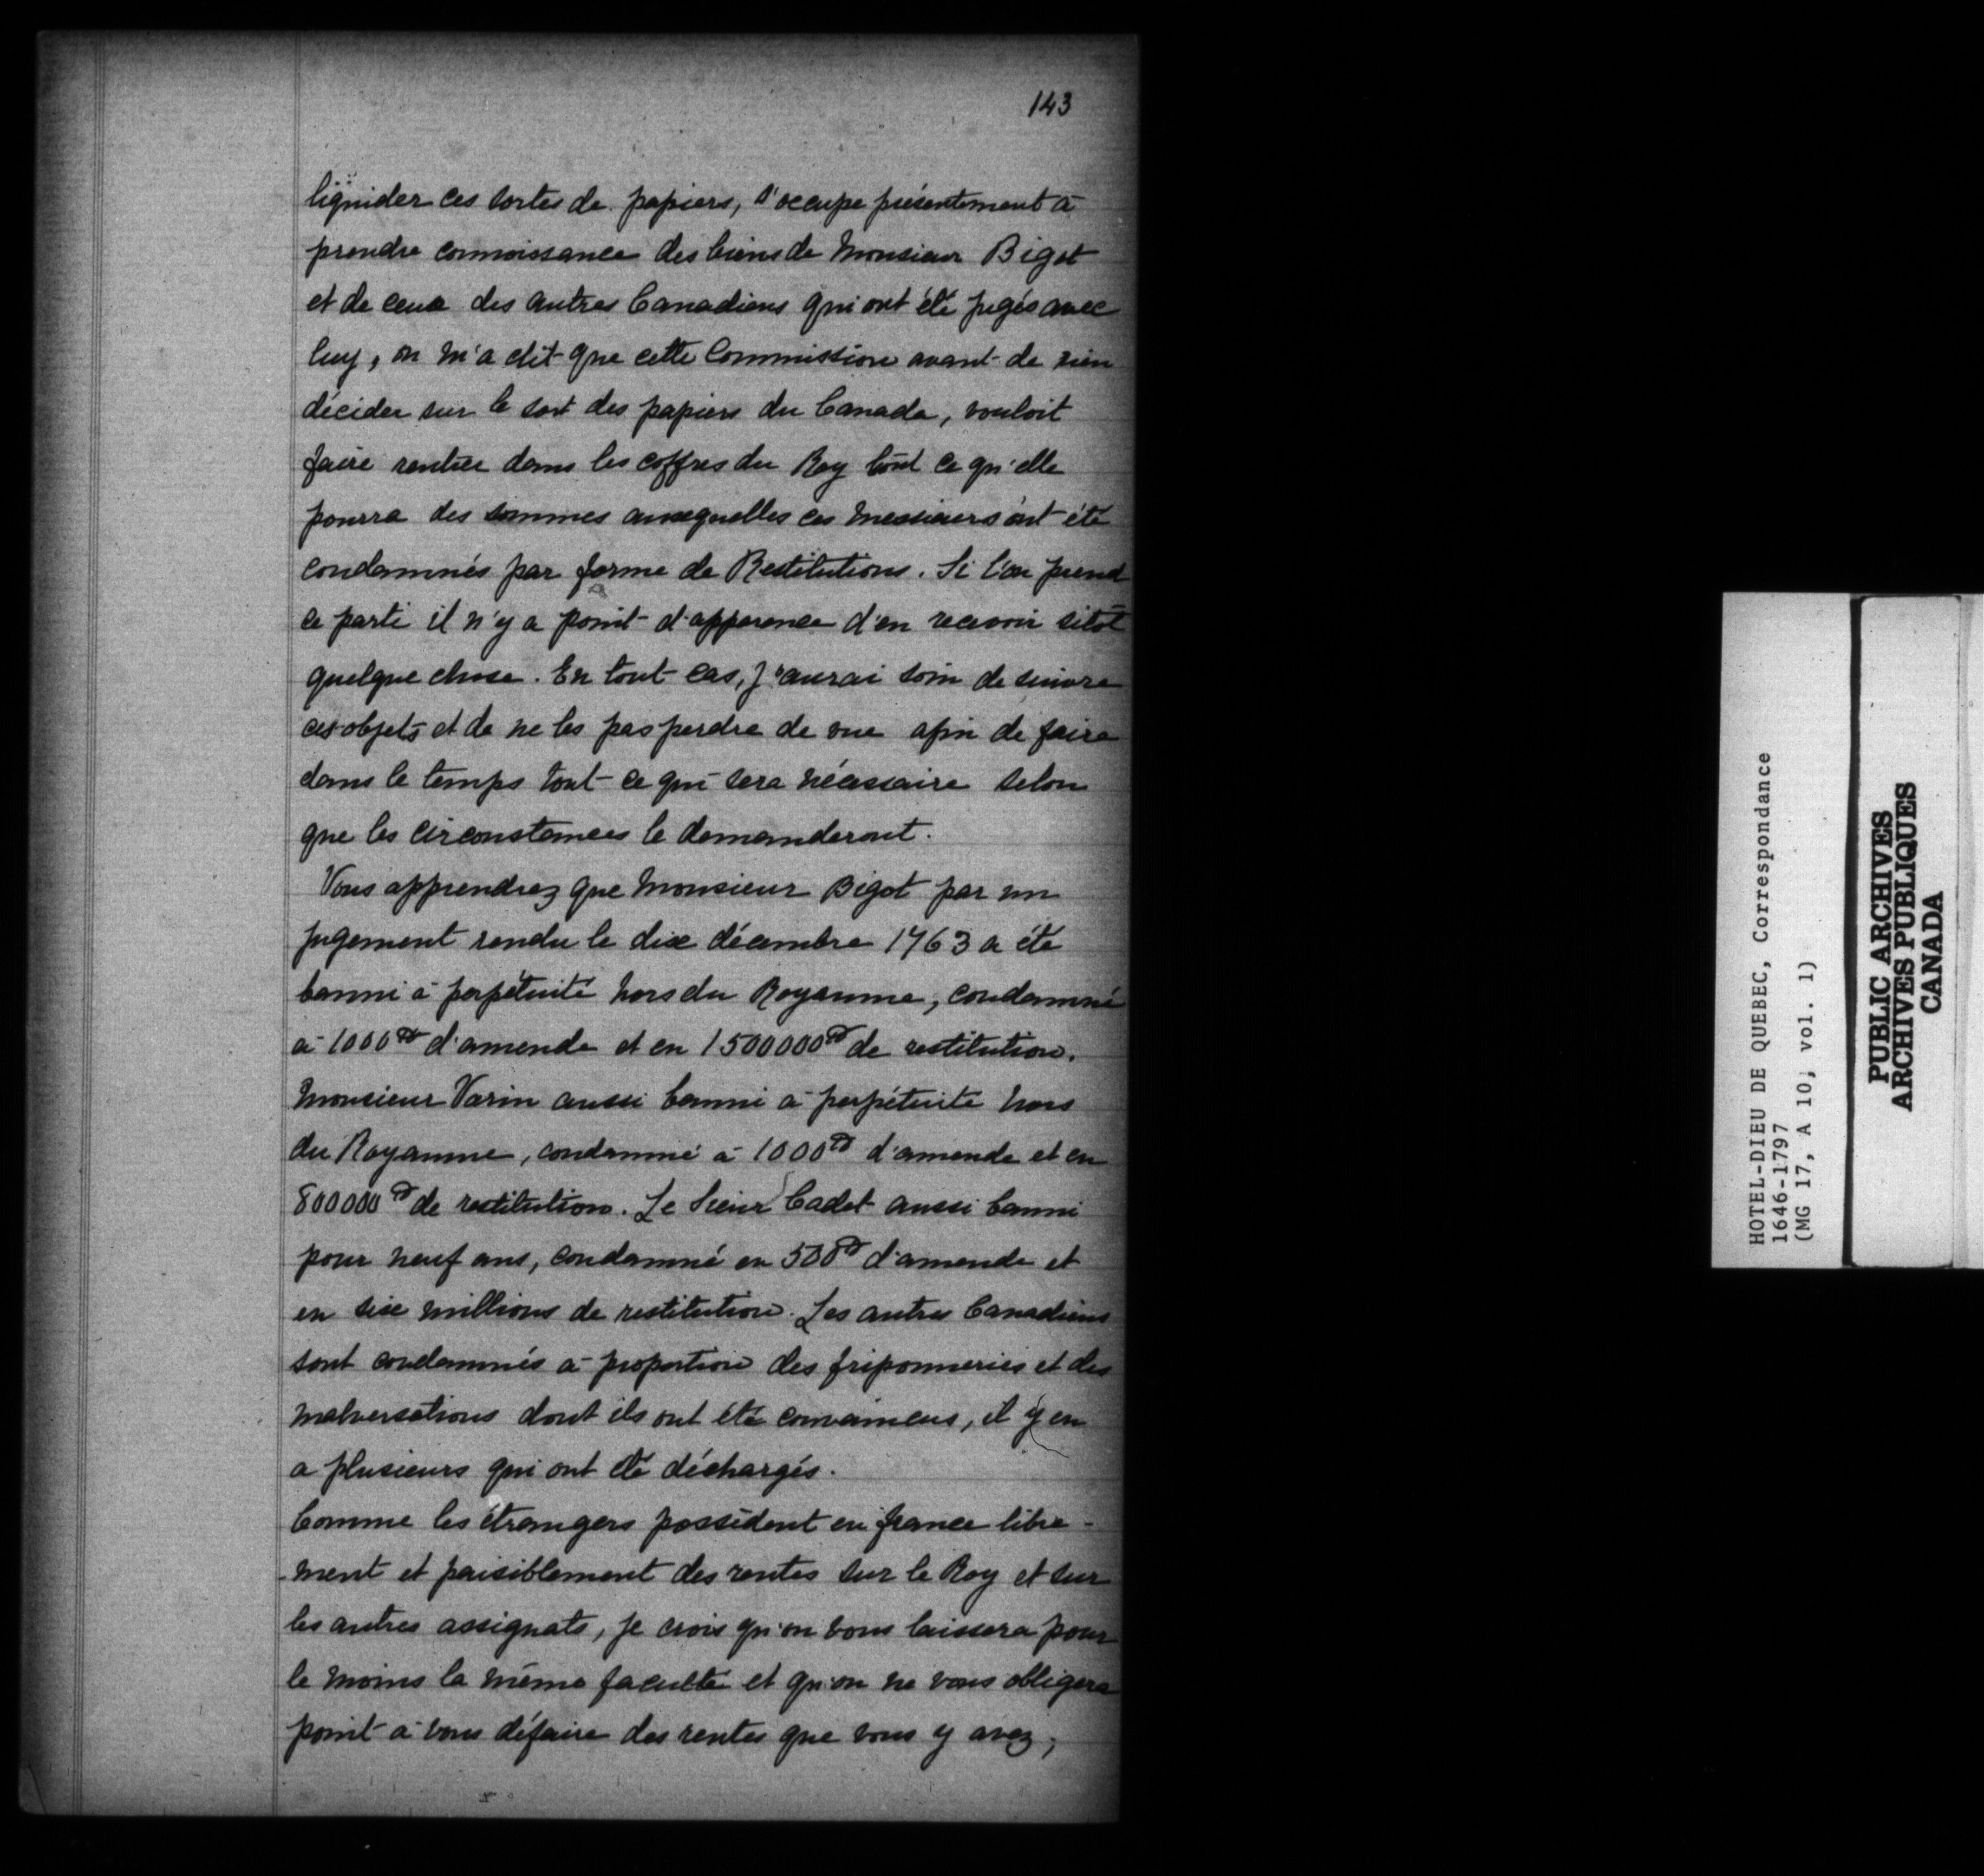 143
liquider ces sortes de papiers, s'occupe présentement à
prendre connoissance des biens de Monsieur Bigot
et de ceux des autres Canadiens qui ont été jugés avec
luy, on m'a dit que cette Commission avant de rien
décider sur le sort des papiers du Canada, vouloit
faire rentrer dans les coffres du Roy tout ce qu'elle
pourra des sommes auxquelles ces Messieurs ont été
condamnés par forme de Restitutions. Si l'on prend
ce parti il n'y a point d'apparence d'en recevoir sitôt
quelque chose. En tout cas, j'aurai soin de suivre
ces objets et de ne les pas perdre de vue afin de faire
dans le temps tout ce qui sera nécessaire selon
que les circonstances le demanderont.
Vous apprendrez que Monsieur Bigot par un
jugement rendu le dix décembre 1763 a été
banni à perpétuité hors du Royaume, condamné
à 1000 d'amende et en 1500000 de restitution.
Monsieur Varin aussi banni à perpétuité hors
du Royaume, condamné à 1000 d'amende et en
800000 de restitution. Le Sieur Cadet aussi banni
pour neuf ans, condamné en 500 d'amende et
en six millions de restitution. Les autres Canadiens
sont condamnés à proportion des friponneries et des
malversations dont ils ont été convaincus, il y en
a plusieurs qui ont été déchargés.
Comme les étrangers possèdent en france libre-
-ment et paisiblement des rentes sur le Roy et sur
les autres assignats, je crois qu'on vous laissera pour
le moins la même faculté et qu'on ne vous obligera
point à vous défaire des rentes que vous y avez;
HOTEL-DIEU DE QUEBEC, Correspondance
1646-1797
(MG 17, A 10, vol. 1)
PUBLIC ARCHIVES
ARCHIVES PUBLIQUES
CANADA